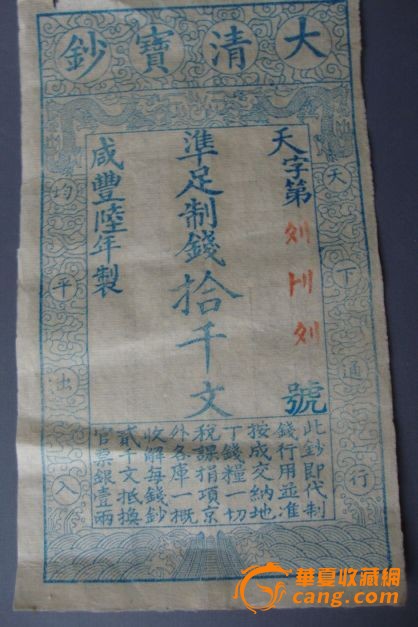 大清寶鈔
天下通行
天字第
號
準足制錢拾千文
咸豐陸年製
均平出入
此鈔即代制
錢行用並准
按成交納地
丁錢糧一切
稅課捐項京
外各庫一概
收解每錢鈔
貳千文抵換
官票銀壹兩
華夏收藏網
cang.com